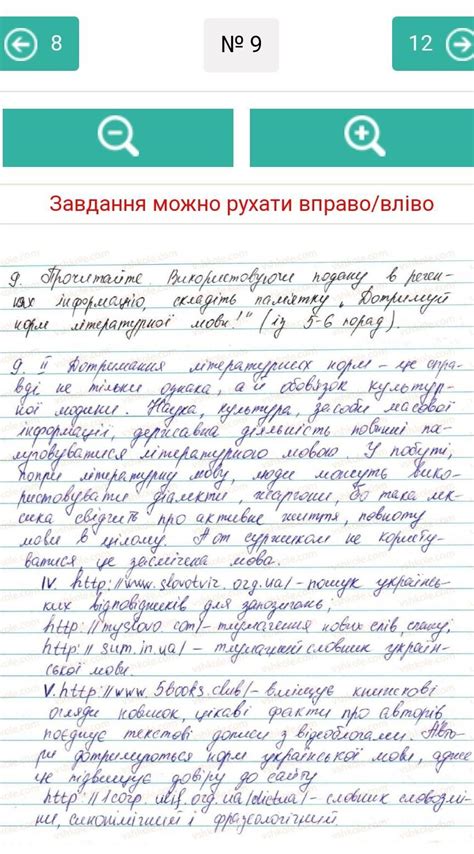 8
№ 9
12
Завдання можно рухати вправо/вліво
9. Прочитайте. Використовуючи подану в речен-
нях інформацію, складіть пам'ятку „Дотримуй
норм літературної мови!" (із 5-6 порад).
9. II Дотримання літературних норм – це спра-
вді не тільки ознака, а й обов'язок культур-
ної людини. Наука, культура, засоби масової
інформації, державна діяльність повинні
літературною мовою. У побуті,
попри літературну мову, люди можуть вико-
ристовувати діалекти, жаргони, бо така лек-
сика свідчить про активне життя, повноту
мови в цілому. А от суржиком не користу-
ватися, це засмічена мова.
IV. http://www.slovotvir.org.ua/ – пошук українсь-
ких відповідників для запозичень;
http://myslovo.com/ – тлумачення нових слів, сленгу;
http://sum.in.ua/ – тлумачний словник україн-
ської мови.
V. http://www.5books.club/ – вміщує книжкові
огляди новинок, цікаві факти про авторів,
поєднує текстові дописи з відеоблогами. Авто-
ри дотримуються норм української мови, адже
це підвищує довіру до сайту
http://lcorp.ulif.org.ua/dictua/ – словник словозмі-
ни, синонімічний і фразеологічний